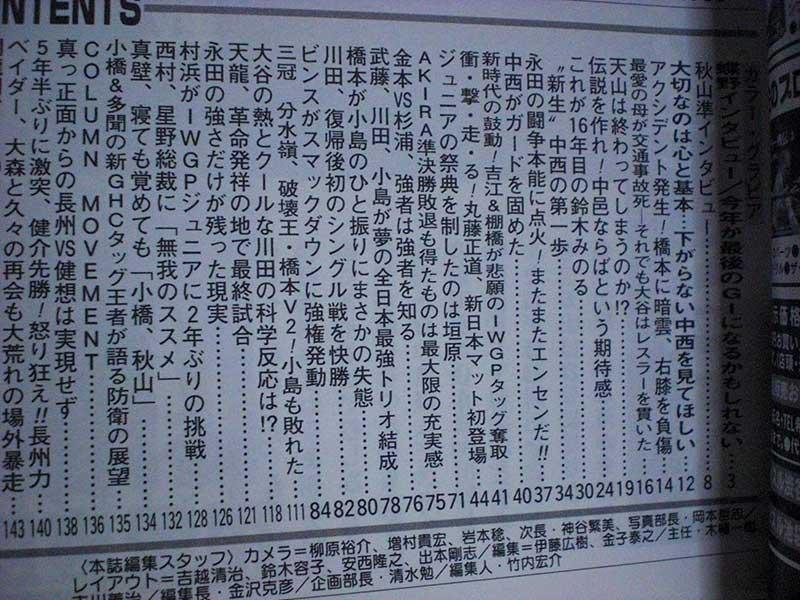 ENTENTS
カラー・グラビア
蝶野インタビュー/今年が最後のGIになるかもしれない……3
秋山準インタビュー……8
大切なのは心と基本…下がらない中西を見てほしい 12
アクシデント発生!橋本に暗雲、右膝を負傷……14
最愛の母が交通事故死―それでも大谷はレスラーを貫いた 16
天山は終わってしまうのか!?……19
伝説を作れ!中邑ならばという期待感……24
これが16年目の鈴木みのる……30
“新生”中西の第一歩……34
永田の闘争本能に点火!またまたエンセンだ!!……37
中西がガードを固めた……40
新時代の鼓動!吉江&棚橋が悲願のIWGPタッグ奪取 41
衝・撃・走・る!丸藤正道、新日本マット初登場……44
ジュニアの祭典を制したのは垣原……71
AKIRA準決勝敗退も得たものは最大限の充実感……75
金本VS杉浦、強者は強者を知る……76
武藤、川田、小島が夢の全日本最強トリオ結成……78
橋本が小島のひと振りにまさかの失態……80
川田、復帰後初のシングル戦を快勝……82
ビンスがスマックダウンに強権発動……84
三冠 分水嶺、破壊王・橋本V2!小島も敗れた……111
大谷の熱とクールな川田の科学反応は!?……118
天龍、革命発祥の地で最終試合……121
永田の強さだけが残った現実……126
村浜がIWGPジュニアに2年ぶりの挑戦……128
西村、星野総裁に「無我のススメ」……132
真壁、寝ても覚めても「小橋、秋山」……134
小橋&多聞の新GHCタッグ王者が語る防衛の展望……135
COLUMN MOVEMENT……136
真っ正面からの長州VS健想は実現せず……138
5年半ぶりに激突、健介先勝!怒り狂え!!長州力……140
ベイダー、大森と久々の再会も大荒れの場外暴走 143
〈本誌編集スタッフ〉カメラ=柳原裕介、増村貴宏、岩本稔、次長・神谷繁美、写真部長・岡本
レイアウト=吉越清治、鈴木容子、安西隆之、出本剛志/編集=伊藤広樹、金子泰之/主任・木
編集長・金沢克彦/企画部長・清水勉/編集人・竹内宏介